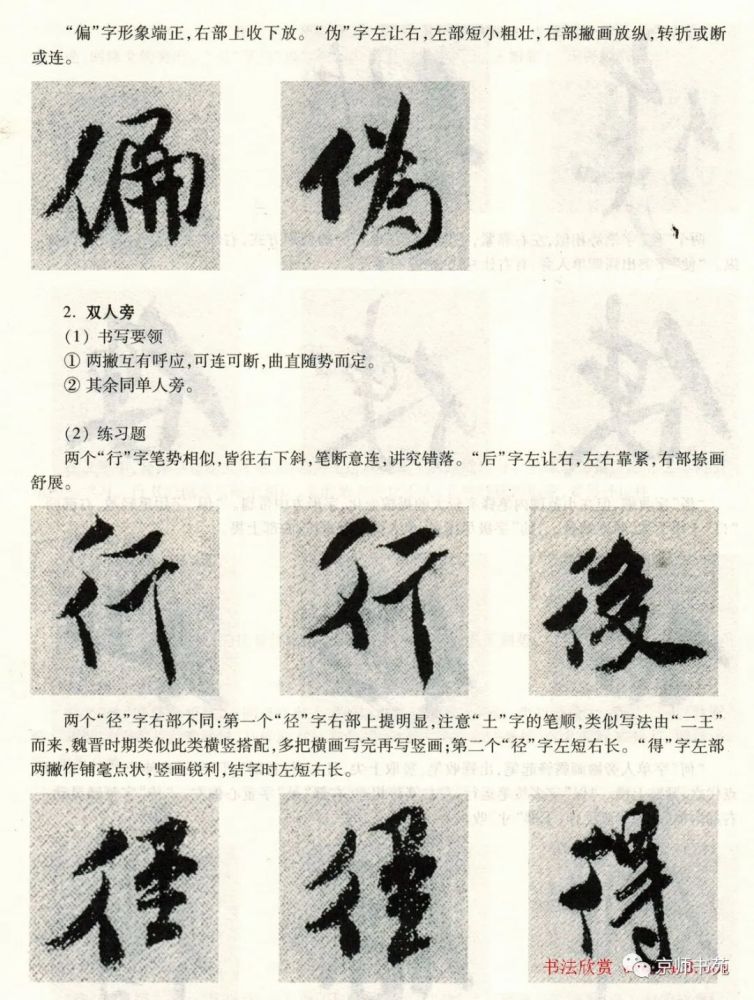 “偏”字形象端正,右部上收下放。“伪”字左让右,左部短小粗壮,右部撇画放纵,转折或断
或连。
偏 偽
2. 双人旁
(1) 书写要领
① 两撇互有呼应,可连可断,曲直随势而定。
② 其余同单人旁。
(2) 练习题
两个“行”字笔势相似,皆往右下斜,笔断意连,讲究错落。“后”字左让右,左右靠紧,右部捺画
舒展。
行 行 後
两个“径”字右部不同:第一个“径”字右部上提明显,注意“土”字的笔顺,类似写法由“二王”
而来,魏晋时期类似此类横竖搭配,多把横画写完再写竖画;第二个“径”字左短右长。“得”字左部
两撇作铺毫点状,竖画锐利,结字时左短右长。
径 径 得
书法欣赏
京师书苑